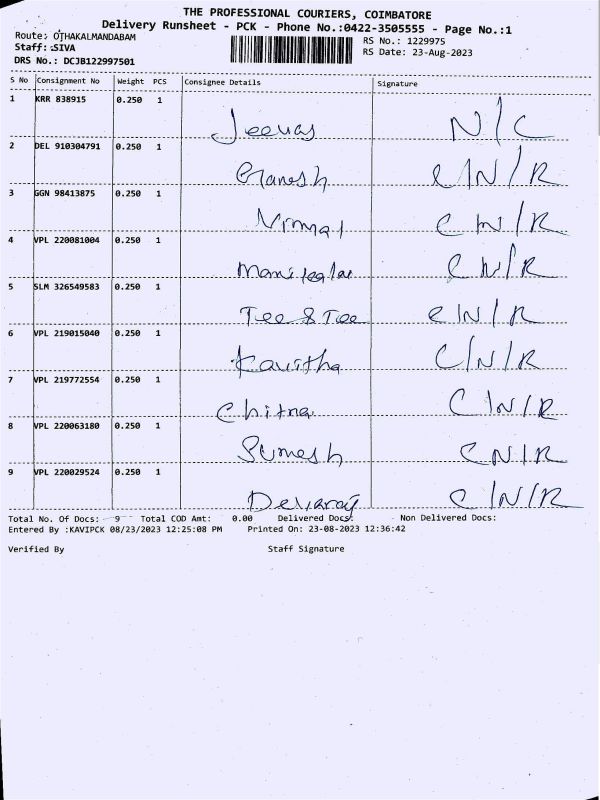 THE PROFESSIONAL COURIERS, COIMBATORE
Delivery Runsheet - PCK - Phone No.:0422-3505555 - Page No.:1
Route: OTHAKALMANDABAM
RS No.: 1229975
Staff: SIVA
RS Date: 23-Aug-2023
DRS No.: DCJB122997501
S No Consignment No Weight PCS Consignee Details Signature
1 KRR 838915 0.250 1
Jeevas N/C
2 DEL 910304791 0.250 1
Ganesh C/N/R
3 GGN 98413875 0.250 1
Nirmal C N/R
4 VPL 220081004 0.250 1
C N/R
5 SLM 326549583 0.250 1
Tee & Tee C/N/R
6 VPL 219015040 0.250 1
Kavitha C/N/R
7 VPL 219772554 0.250 1
Chitra C N/R
8 VPL 220063180 0.250 1
Sumesh C N/R
9 VPL 220029524 0.250 1
Devaraj C/N/R
Total No. Of Docs: 9 Total COD Amt: 0.00 Delivered Docs: Non Delivered Docs:
Entered By :KAVIPCK 08/23/2023 12:25:08 PM Printed On: 23-08-2023 12:36:42
Verified By Staff Signature